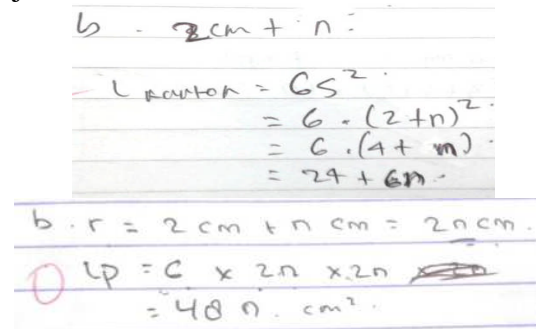 b. 2cm + n:
L karton = 6s².
= 6.(2+n)².
= 6.(4+ m).
= 24 + 6n.
b. r = 2 cm + n cm = 2n cm.
Lp = 6 x 2n x 2n
= 48 n. cm².